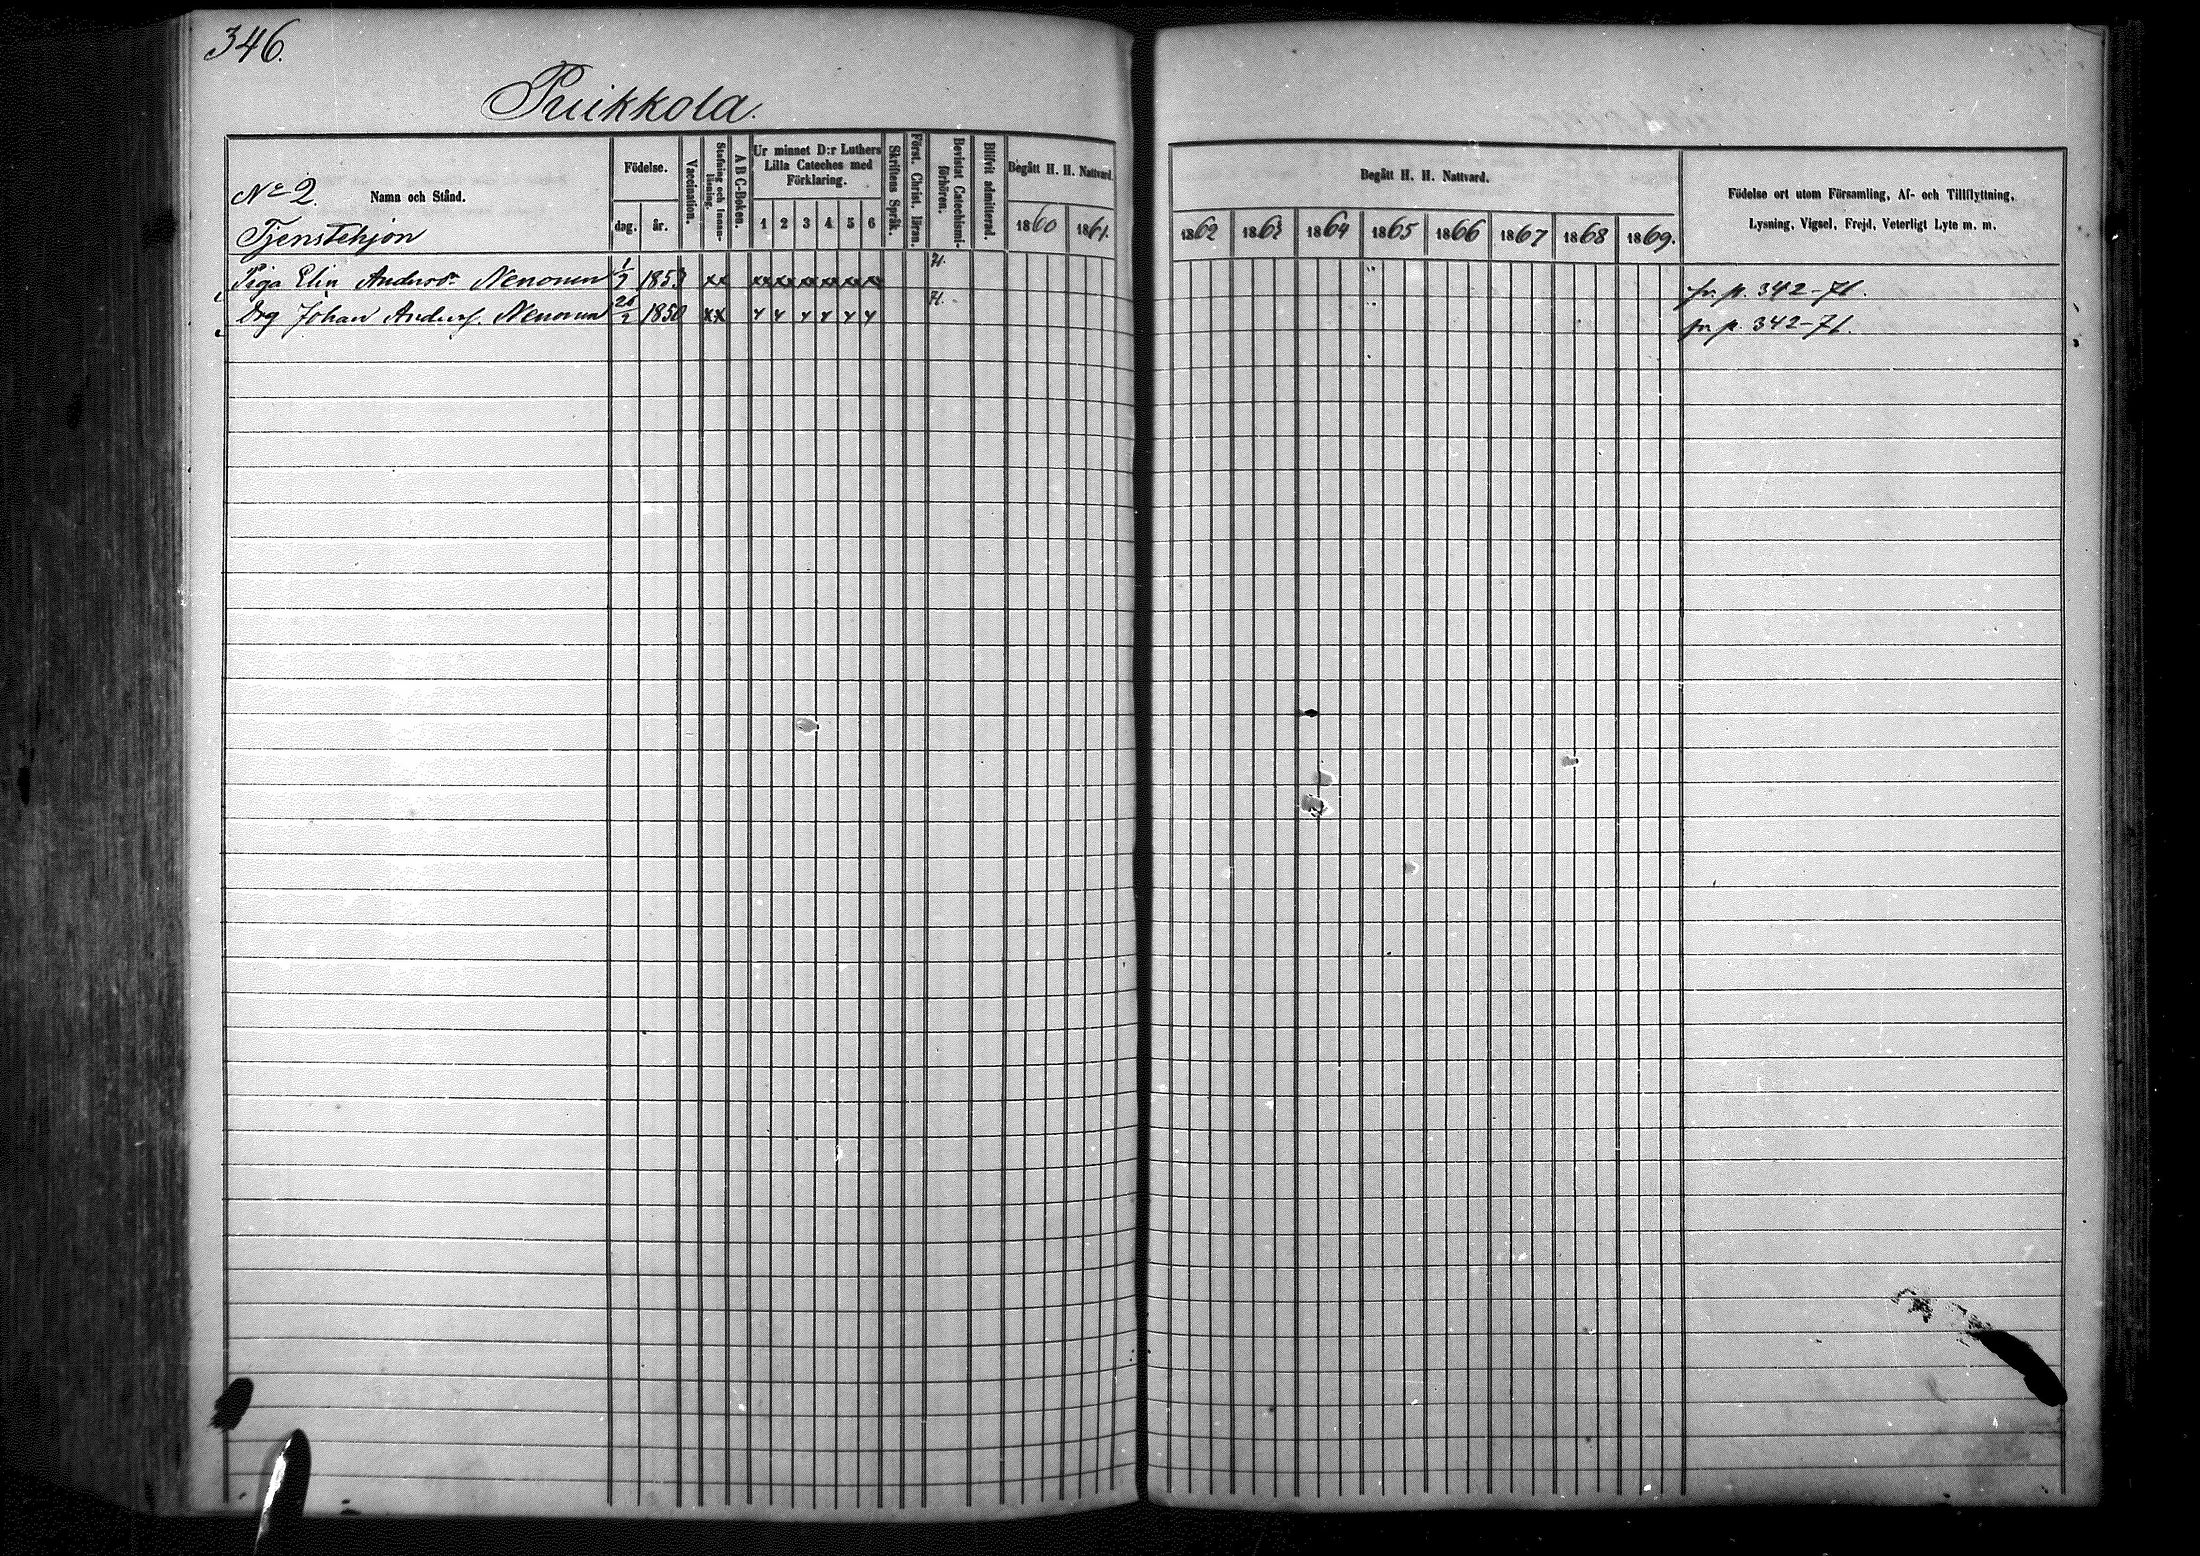 346.
Puikkola.
No 2.
Namn och Stånd.
Tjenstehjon
Födelse.
dag.
år.
Vaccination.
Stafning och Innan-läsning.
A B C-Boken.
Ur minnet D:r Luthers
Lilla Cateches med
Förklaring.
1 2 3 4 5 6
Skriftens Språk.
Först. Christ. läran.
Bevistat Catechismi-förhören.
Blifvit admitterad.
Begått H. H. Nattvard.
1860 1861.
Begått H. H. Nattvard.
1862 1863 1864 1865 1866 1867 1868 1869.
Födelse ort utom Församling, Af- och Tillflyttning,
Lysning, Vigsel, Frejd, Veterligt Lyte m. m.
Piga Elin Andersdr Nenonen 1853 xx x x x x x x 71. fr. p. 342-71.
Drg Johan Anders. Nenonen 1850 xx x x x x x x 71. fr. p. 342-71.